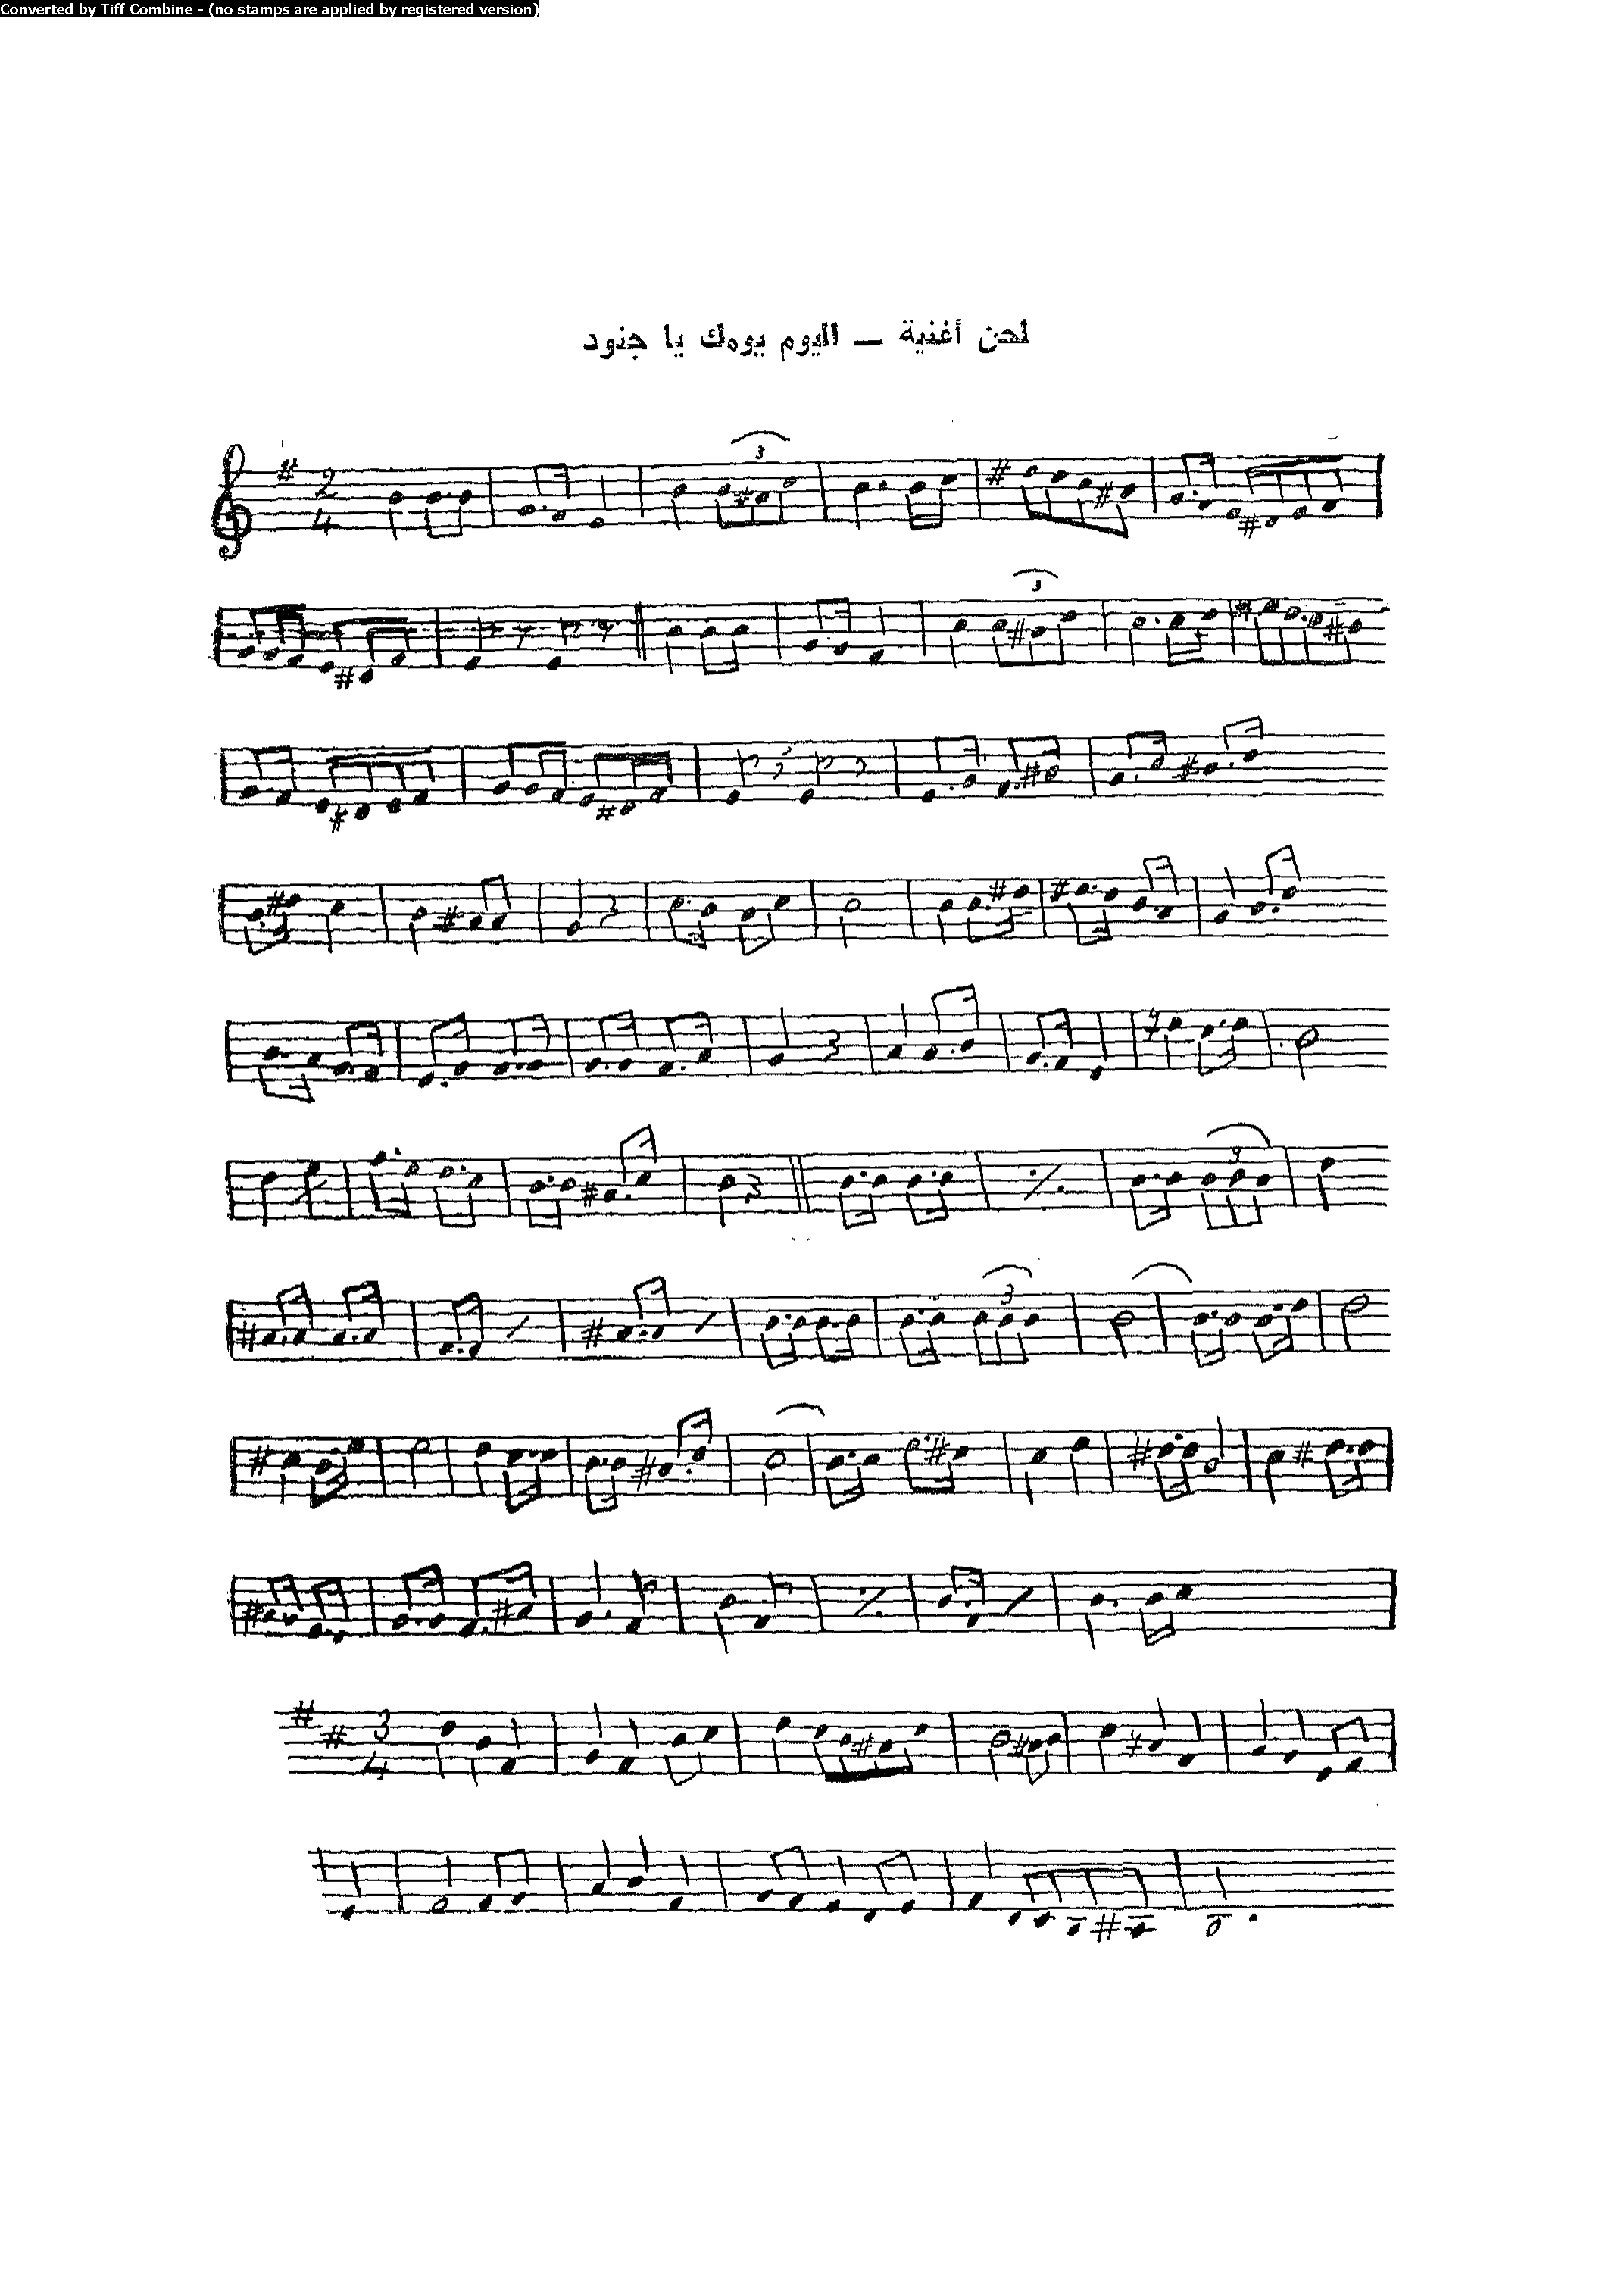 Converted by Tiff Combine - (no stamps are applied by registered version)
لحن أغنية — اليوم يومك يا جنود
2
4
3
3
3
3
3
4